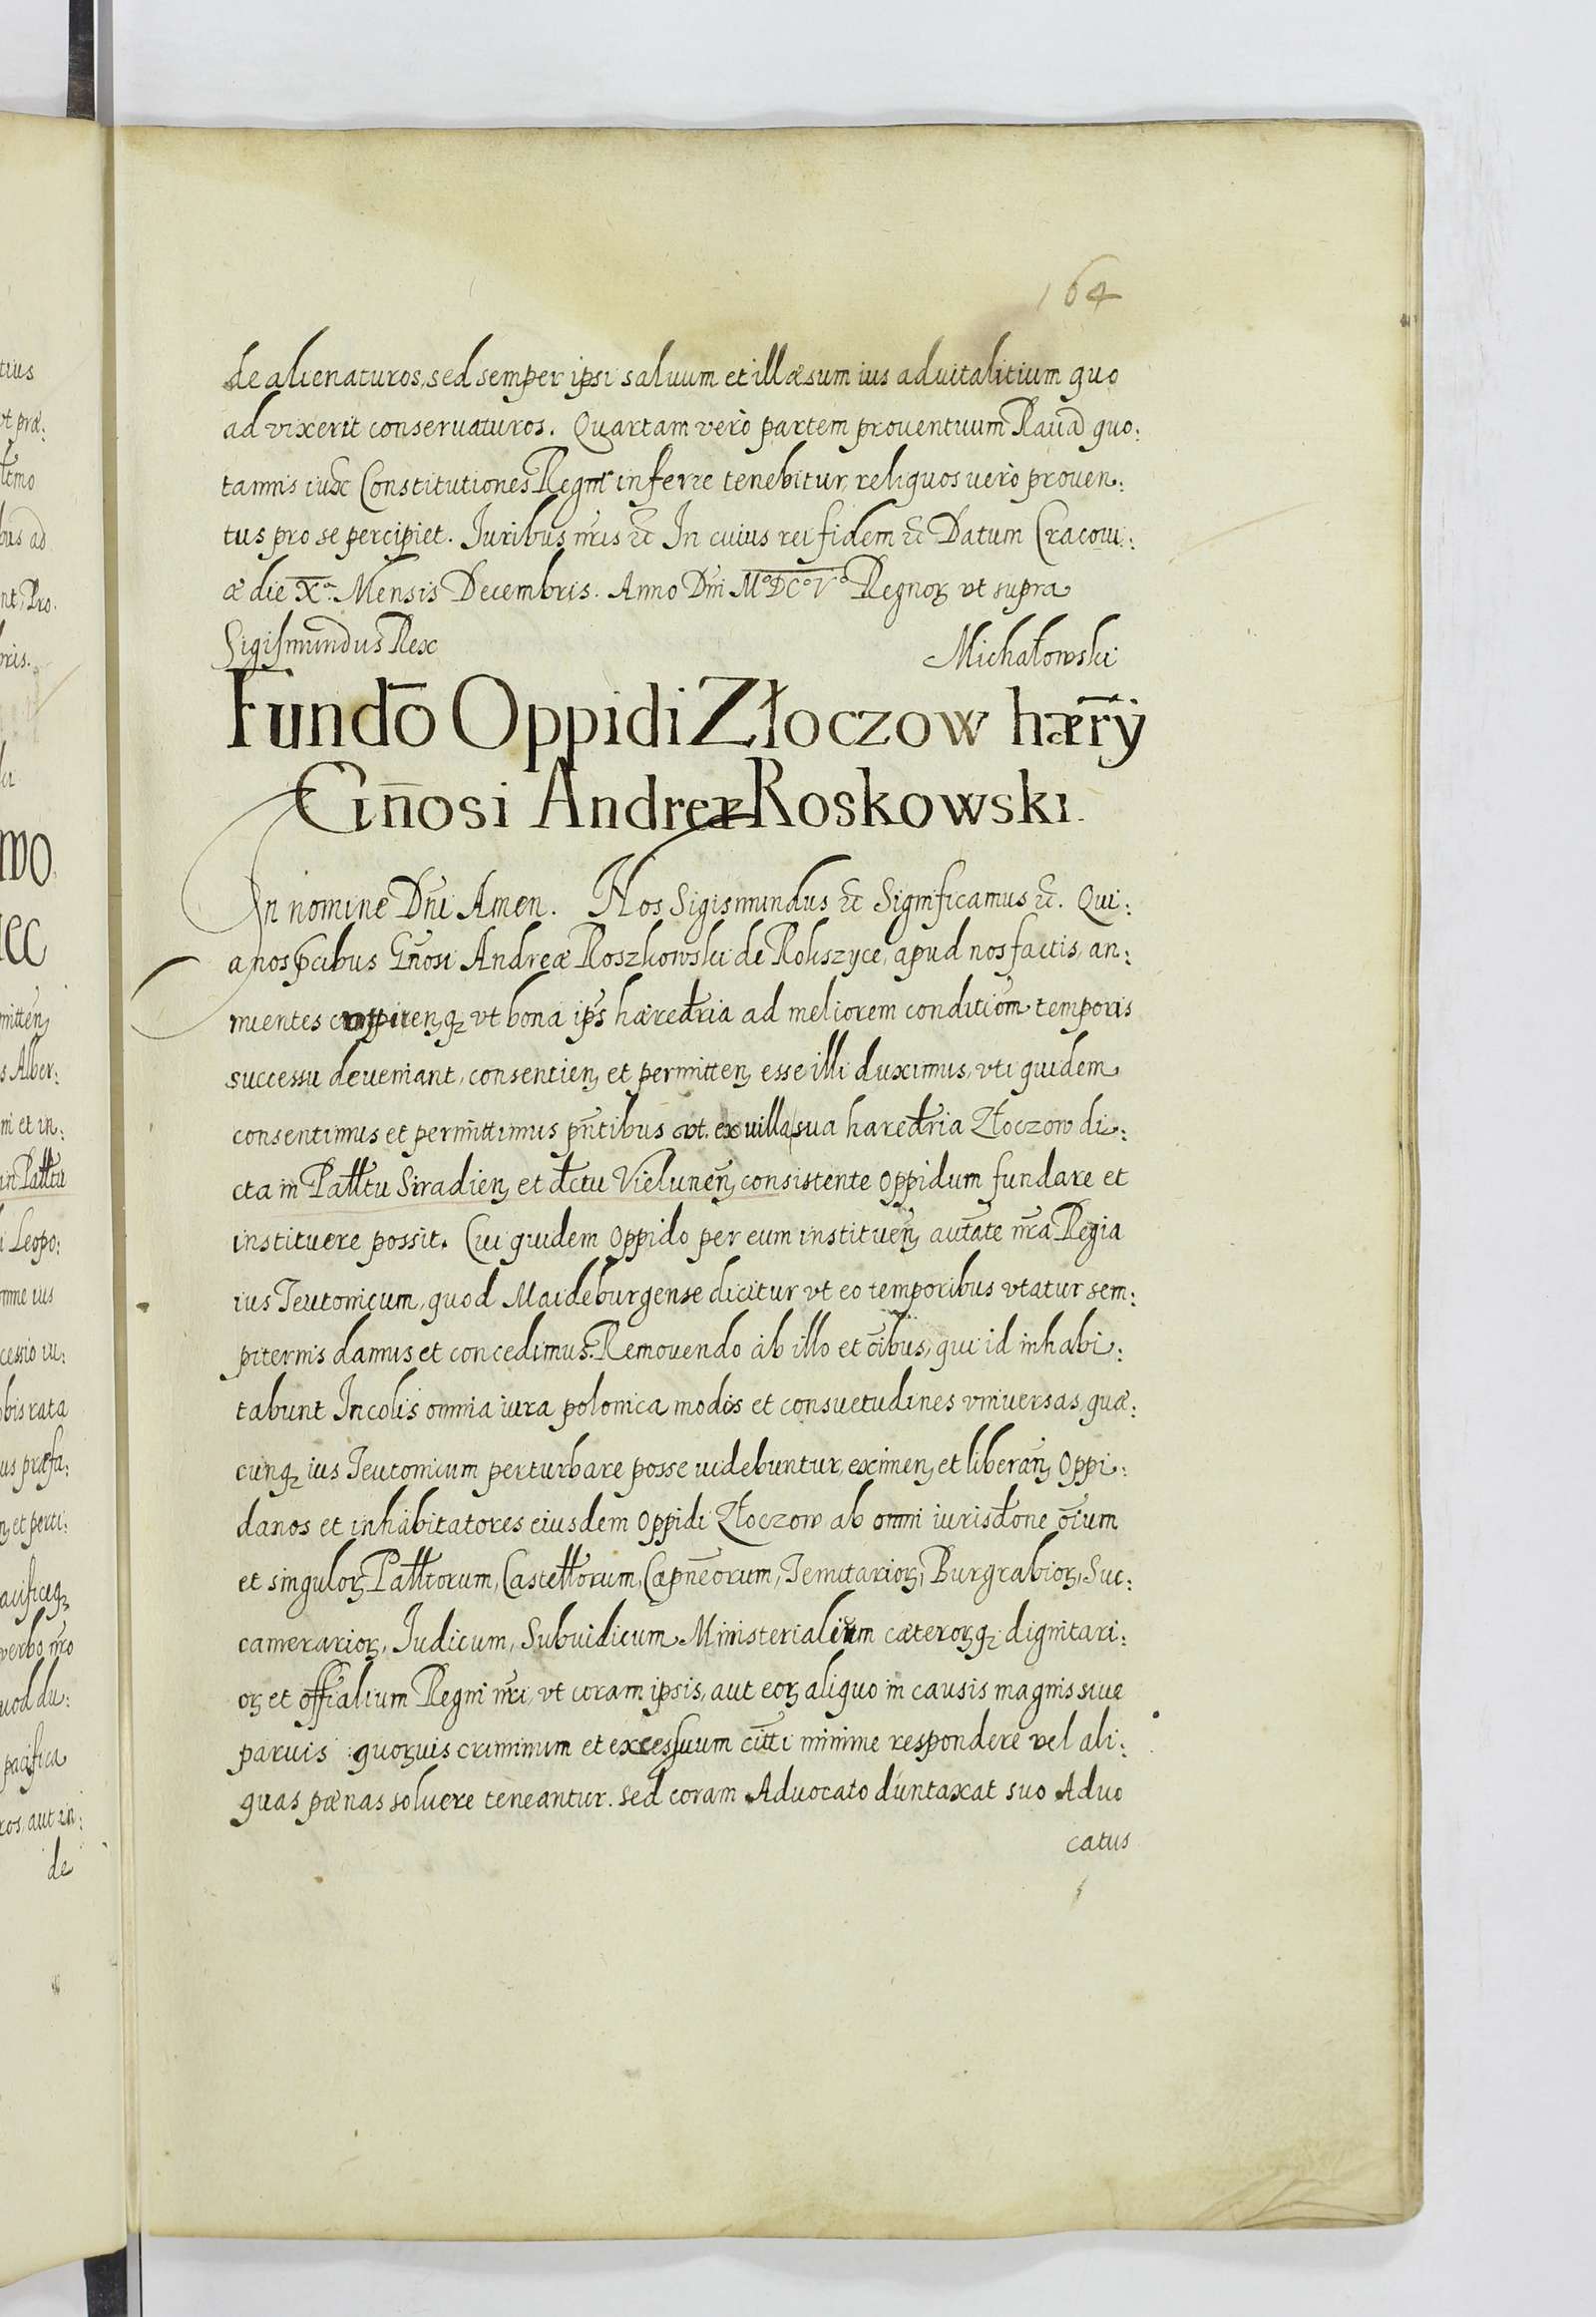 164
de alienaturos, sed semper ipsi saluum et illæsum ius aduitalitium quo
ad vixerit conseruaturos. Quartam verò partem prouentuum Rauã quo:
tannis iux Constitutiones Regni inferre tenebitur, reliquos verò prouen:
tus pro se percipiet. Iuribus nr̃is ꝛc̃ In cuius rei fidem ꝛc̃ Datum Cracoui:
æ die Xª. Mensis Decembris. Anno Dni M°DC°V° Regnoꝝ vt supra
Sigismundus Rex Michałowski
Fundõ Oppidi Złoczow hær̃ry
Gñosi Andreæ Roskowski.
In nomine Dñi Amen. Nos Sigismundus ꝛc̃ Significamus ꝛc̃. Qui:
a nos p̃cibus Gñosi Andreæ Roszkowski de Rokszyce, apud nos factis, an:
nuentes cupieñqꝫ vt bona ip̃s hæredr̃ia ad meliorem conditiõm temporis
successu deueniant, consentieñ et permitteñ esse illi duximus, vti quidem
consentimus et permittimus pñtibus vt ex villa sua haredr̃ia Złoczow di:
cta in Pałłtu Siradieñ et dc̃tu Vieluneñ consistente oppidum fundare et
instituere possit. Cui quidem oppido per eum institueñ autãte nr̃a Regia
ius Teutonicum, quod Maideburgense dicitur vt eo temporibus vtatur sem:
piternis damus et concedimus. Remouendo ab illo et oĩbus, qui id inhabi:
tabunt Incolis omnia iura polonica modos et consuetudines vniuersas, quæ:
cunqꝫ ius Teutonicum perturbare posse uidebuntur, eximeñ et liberañ Oppi:
danos et inhabitatores eiusdem oppidi Złoczow ab omni iurisdõne oĩum
et singuloꝝ Pałłtorum, Castełłorum, Capñeorum, Tenutarioꝝ, Burgrabioꝝ, Suc:
camerarioꝝ, Iudicum, Subiudicum Ministerialium cæteroꝝqꝫ dignitari:
oꝝ et offĩalium Regni nr̃i, vt coram ipsis, aut eoꝝ aliquo in causis magnis siue
paruis quoꝝuis criminum et excessuum citti minime respondere vel ali:
quas pænas soluere teneantur. Sed coram Aduocato duntaxat suo Aduo
catus